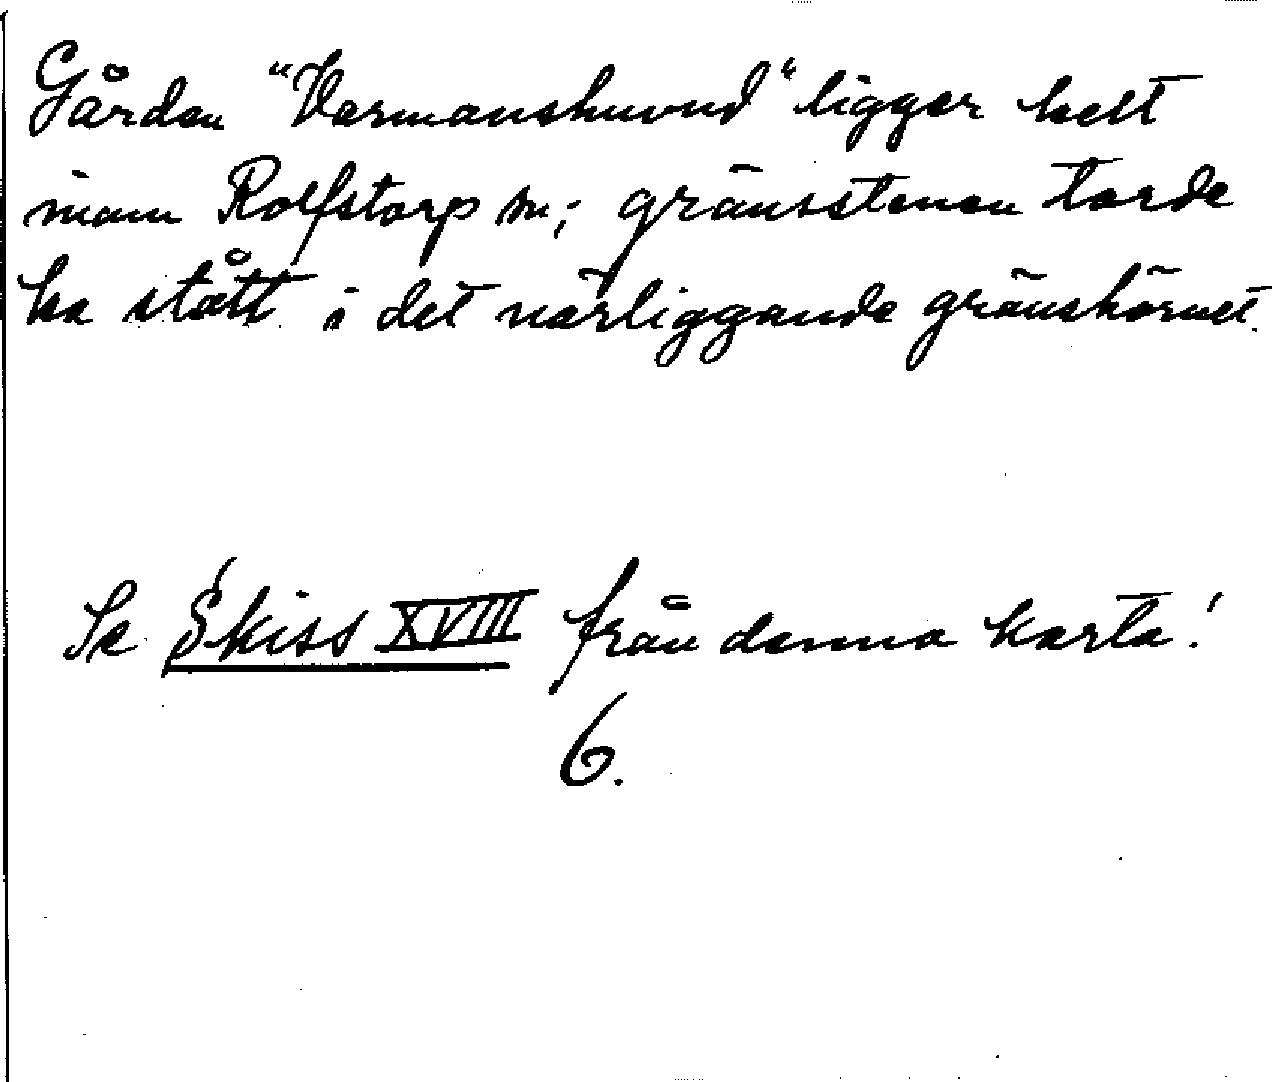 Gården "Varmanshuvud" ligger helt
inom Rolfstorp sn; gränsstenen torde
ha stått i det närliggande gränshörnet.
Se Skiss XVIII från denna karta!
6.